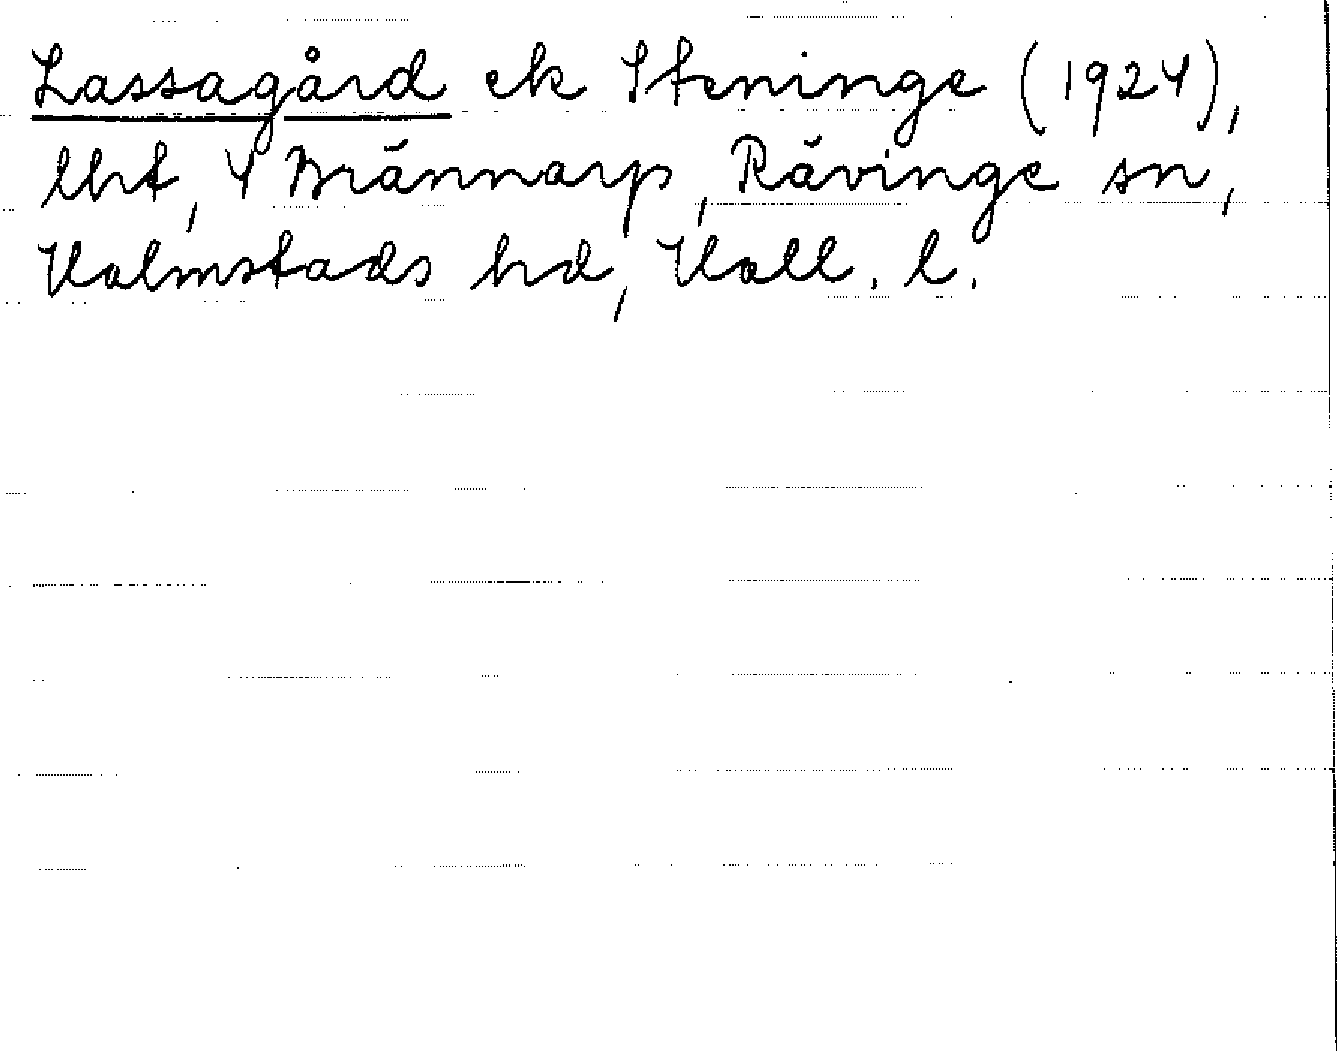 Lassagård ek Steninge (1924),
lht, 4 Brännarp, Rävinge sn,
Halmstads hd, Hall. l.